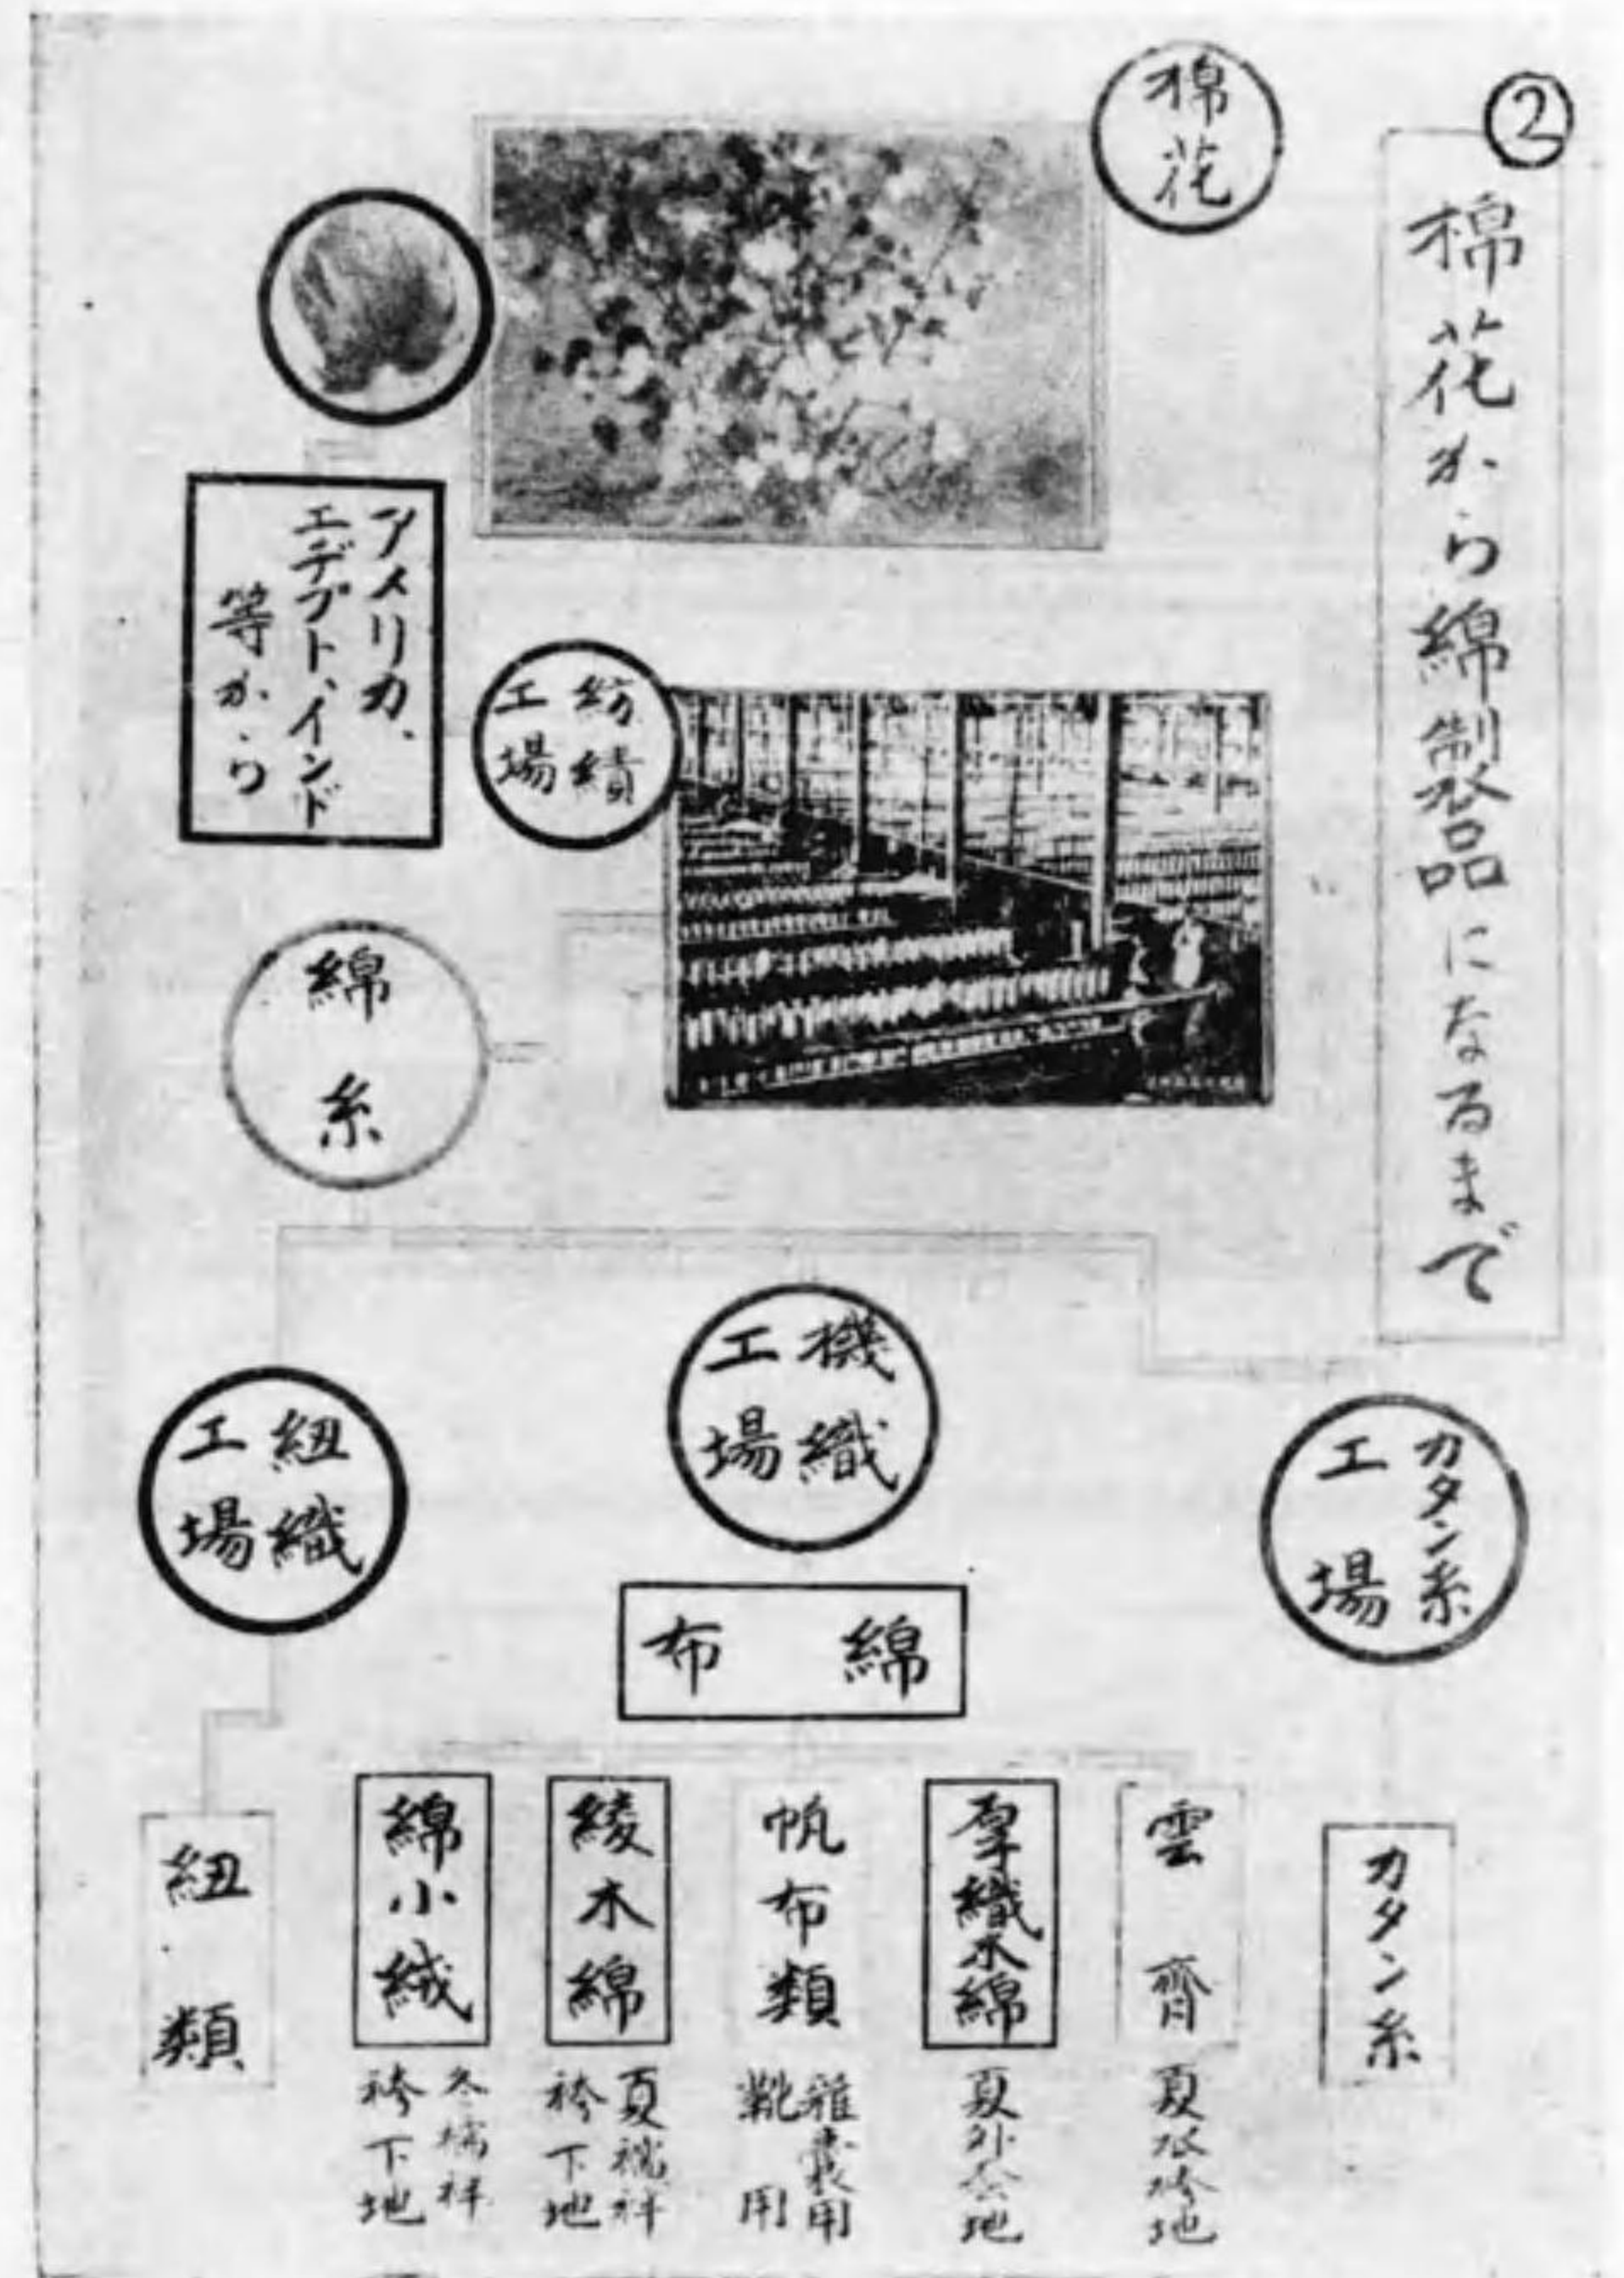 ②
棉花から綿製品になるまで
棉花
アメリカ、
エヂプト、インド
等から
紡績
工場
綿糸
カタン糸
工場
機織
工場
紐織
工場
綿布
カタン糸
雲齊
夏衣袴地
厚織木綿
夏外套地
帆布類
雑嚢用
靴用
綾木綿
夏襦袢
袴下地
綿小絨
冬襦袢
袴下地
紐類